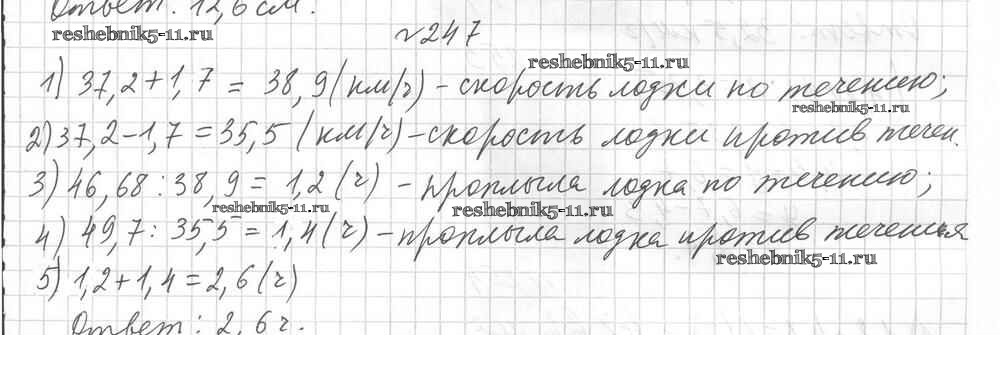 Ответ: 12,6 см.
reshebnik5-11.ru
№247
reshebnik5-11.ru
1) 37,2 + 1,7 = 38,9 (км/ч) - скорость лодки по течению;
reshebnik5-11.ru
2) 37,2 - 1,7 = 35,5 (км/ч) - скорость лодки против течен.
3) 46,68 : 38,9 = 1,2 (ч) - проплыла лодка по течению;
reshebnik5-11.ru
reshebnik5-11.ru
4) 49,7 : 35,5 = 1,4 (ч) - проплыла лодка против течения
reshebnik5-11.ru
5) 1,2 + 1,4 = 2,6 (ч)
Ответ: 2,6 ч.